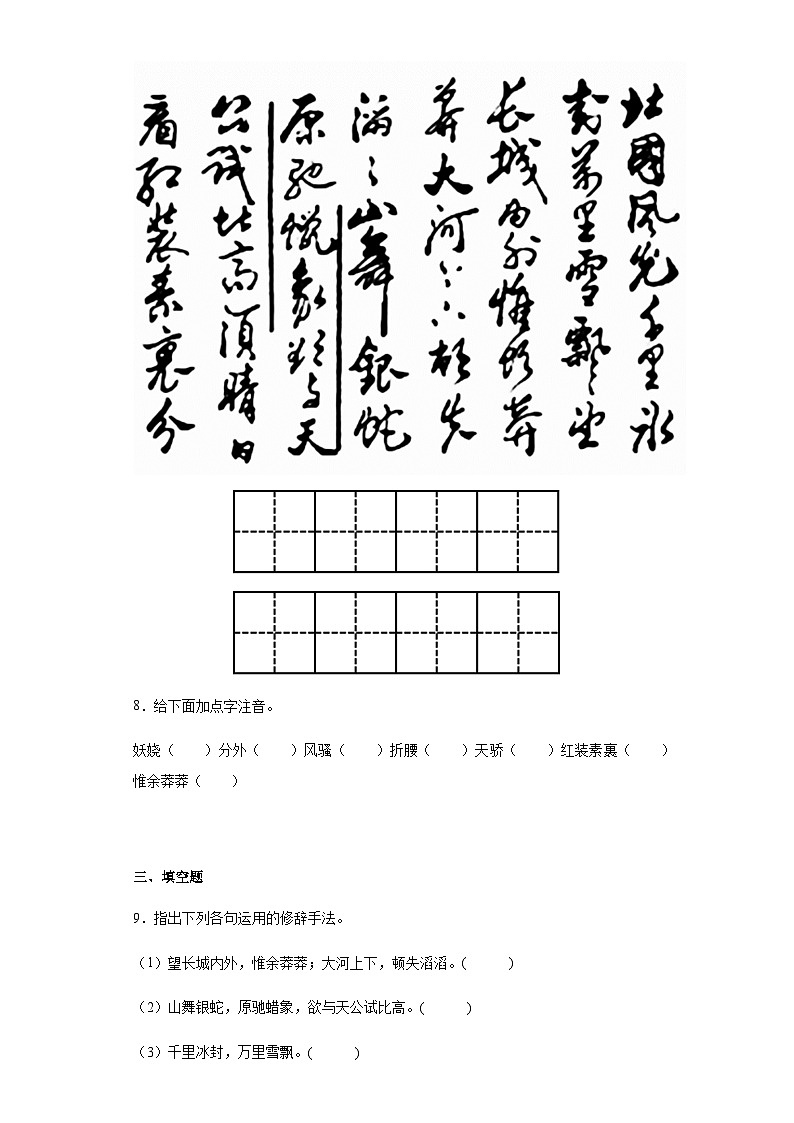 北國風光千里冰
封萬里雪飄望
長城内外惟餘莽
莽大河上下頓失
滔〻山舞銀蛇
原馳蠟象欲与天
公試比高須晴日
看紅裝素裹分
8．给下面加点字注音。
妖娆（　　）分外（　　）风骚（　　）折腰（　　）天骄（　　）红装素裹（　　）
惟余莽莽（　　）
三、填空题
9．指出下列各句运用的修辞手法。
（1）望长城内外，惟余莽莽；大河上下，顿失滔滔。(　　　)
（2）山舞银蛇，原驰蜡象，欲与天公试比高。(　　　)
（3）千里冰封，万里雪飘。(　　　)